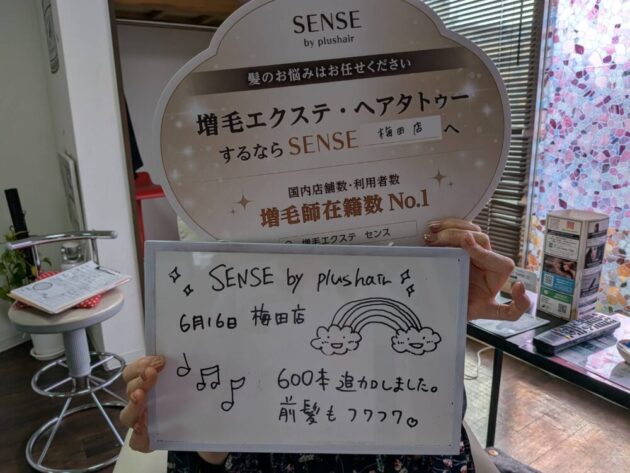 SENSE
by plushair
髪のお悩みはお任せください
増毛エクステ・ヘアタトゥー
するなら SENSE 梅田店 へ
国内店舗数・利用者数
増毛師在籍数 No.1
増毛エクステ センス
SENSE by plushair
6月16日 梅田店
600本 追加しました。
前髪も フワフワ♡